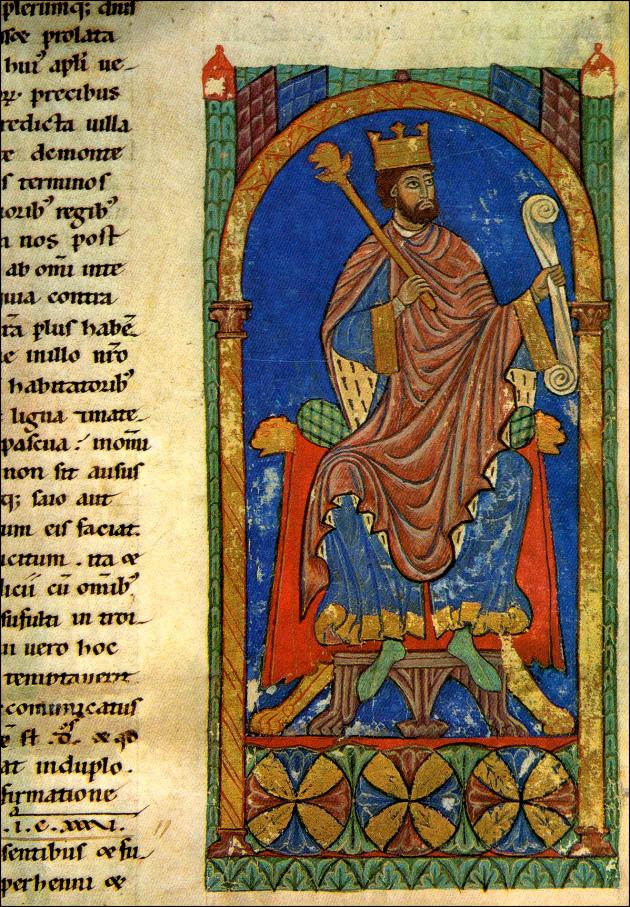 plerumq; diuı
prolata
huiꝰ apłi ue-
precibus
redicta uilla
demonte
s terminos
ioribꝰ regibꝰ
a nos post
ab omı inte
qua contra
plus habē-
e inillo nr̄o
habitatoribꝰ
ligna inmate-
pascua
non sit ausus
q; saio aut
um eis faciat.
icitum . ita &
licii cū om̄ibꝰ
sufulti in troi-
in uero hoc
temptauerit
comunicatus
at induplo .
firmatione
.i.c.xxxvi.
sentibus & fu-
perhenni &